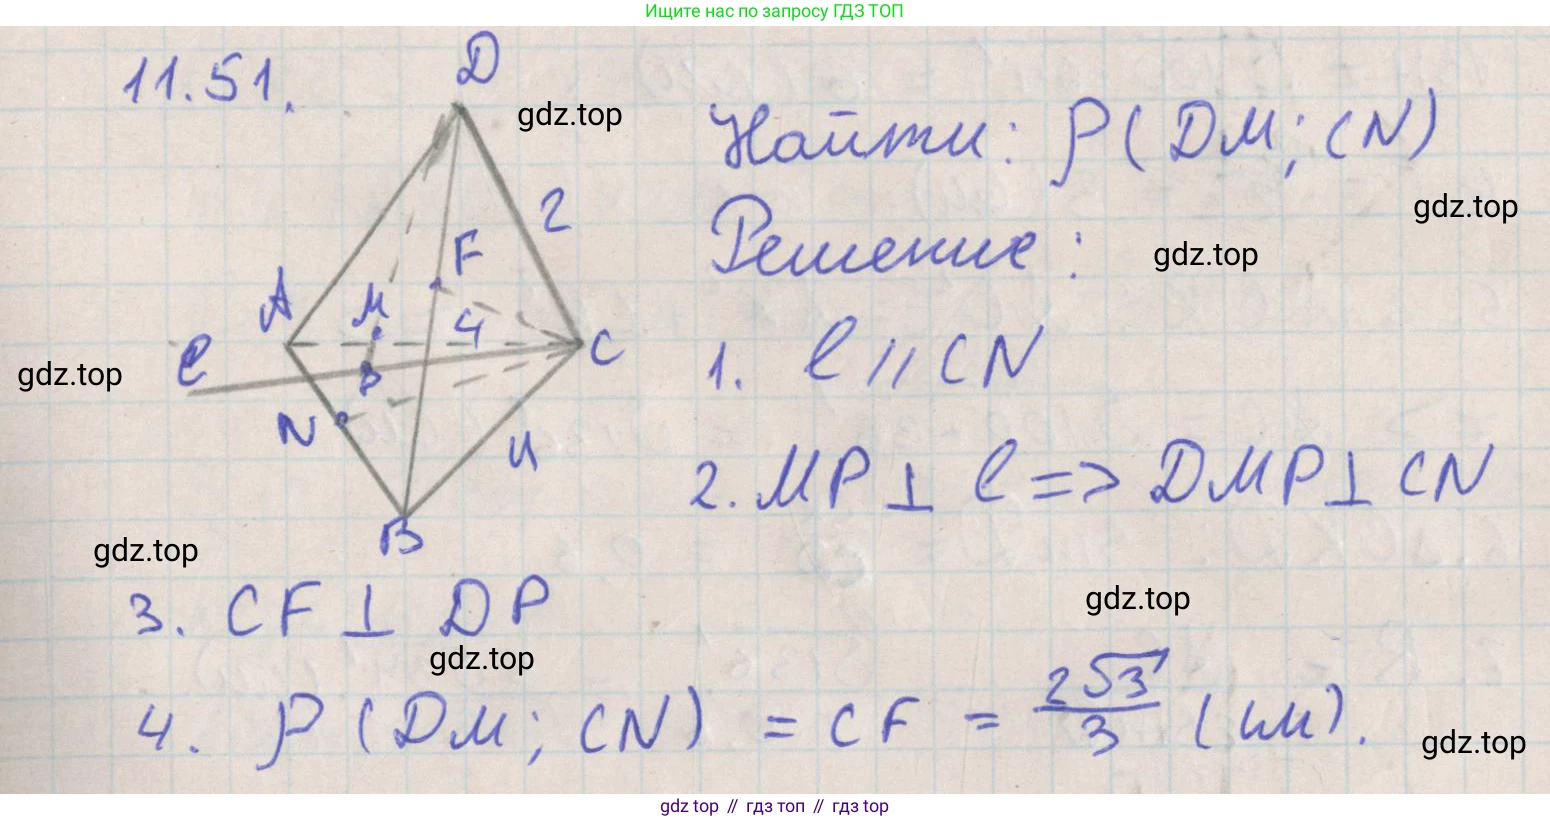 Ищите нас по запросу ГДЗ ТОП
11.51.
D
gdz.top
Найти: ρ(DM; CN)
2
gdz.top
F
Решение:
gdz.top
A
M
4
C
ℓ
gdz.top
P
1. ℓ // CN
N
4
2. MP ⊥ ℓ => DMP ⊥ CN
B
gdz.top
3. CF ⊥ DP
gdz.top
gdz.top
4. ρ(DM; CN) = CF = 2√3/3 (см).
gdz.top
gdz top // гдз топ // gdz top